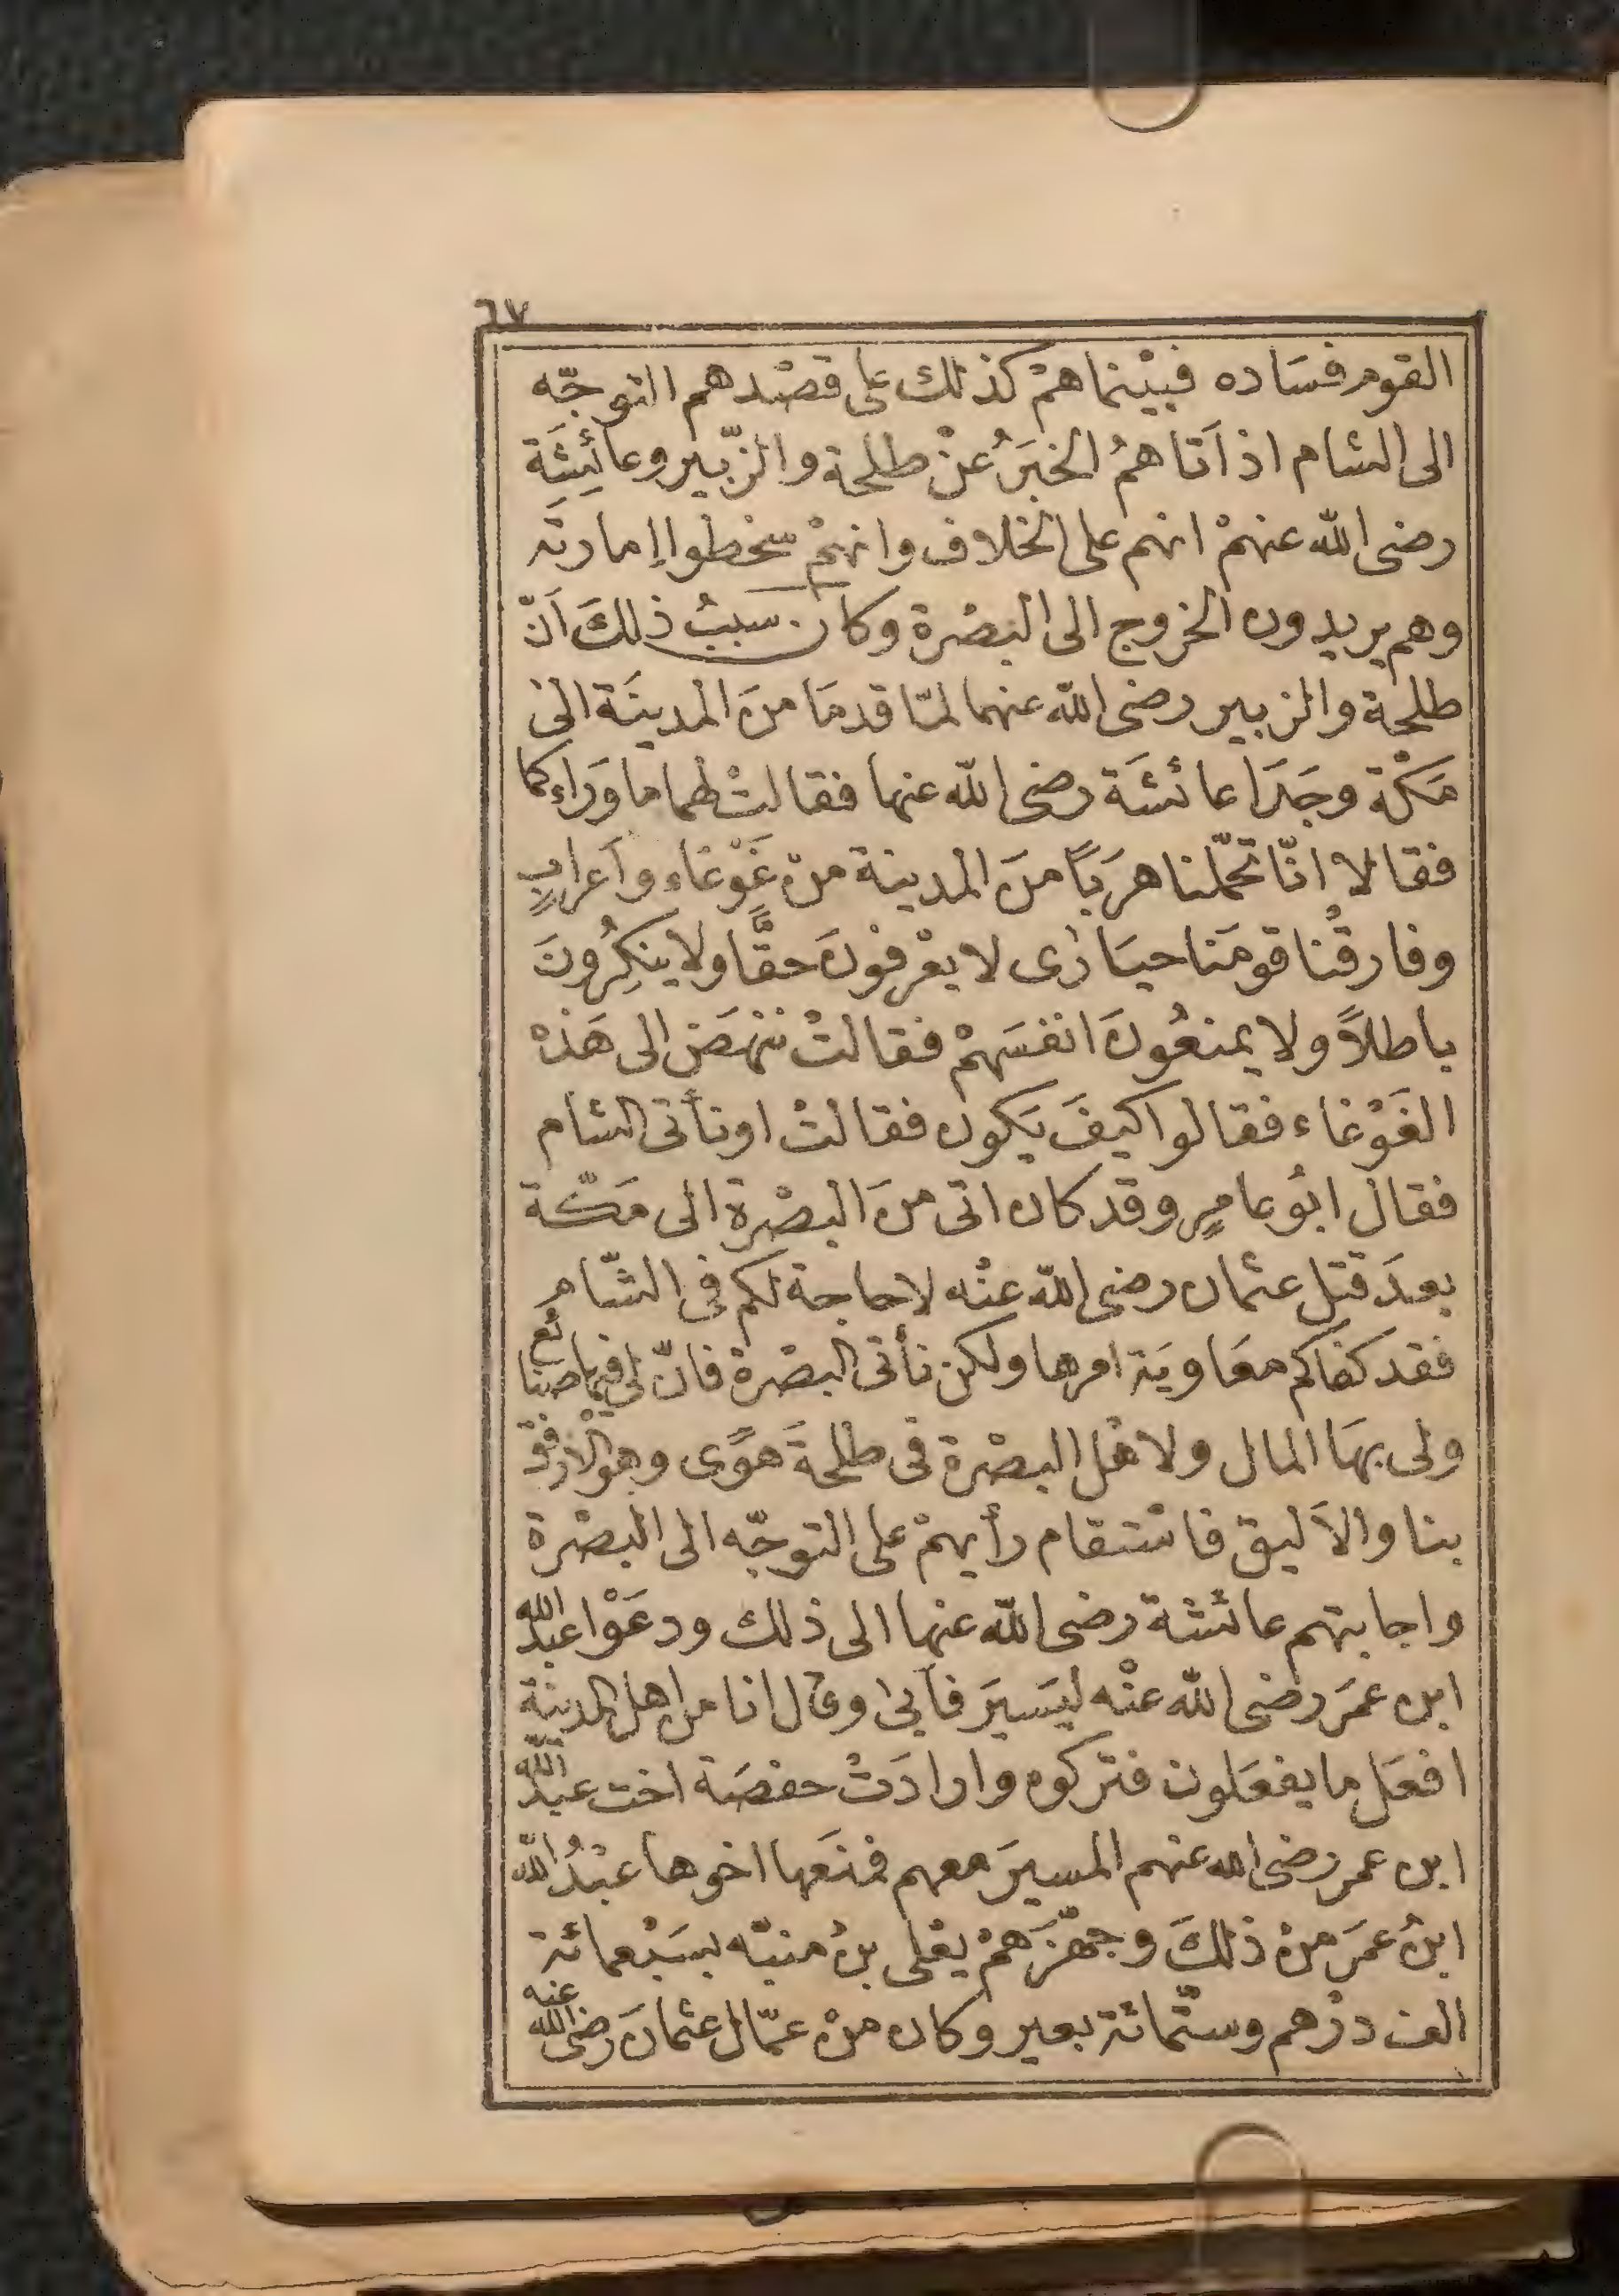 ٦٧
القوم فسَاده فبيْنما همْ كذلك على قصْدهم التوجّه
الى الشام اذ اَتاهمُ الخبَرُ عنْ طلحة والزّبير وعائِشَة
رضى الله عنهمْ انهم على الخلاف وانهمْ سخطوا إمارته
وهم يريدون الخروج الى البصْرة وكان سببُ ذلكَ اَنّ
طلحة والزبير رضى الله عنهما لمّا قدمَا منَ المدينَة الىْ
مَكْة وجَدَا عائشَة رضى الله عنها فقالتْ لهما ما وَراءكما
فقالا انّا تحمّلنا هرَبًا منَ المدينة منْ غَوْغاء واَعرابٍ
وفارقْنا قومَنا حيَارى لا يعْرفونَ حقًّا ولا ينكِرُونَ
باطلاً ولا يمنعُونَ انفسَهمْ فقالتْ ننهَض الى هَذهْ
الغَوْغاء فقالوا كيفَ يَكون فقالتْ اونأتى الشام
فقال ابُو عامرٍ وقد كان اتى منَ البصْرة الى مَكّة
بعدَ قتل عثمان رضى الله عنْه لا حاجة لكم فى الشّام
فقد كفاكم معَاويَة امرها ولكن نأتى البصْرة فانّ لى فيها صنائع
ولى بهَا المال ولاهْل البصْرة فى طلْحةَ هوًى وهو الْارفق
بنا والاَليق فاسْتقام رأيهمْ على التوجّه الى البصْرة
واجابتهم عائشة رضى الله عنها الى ذلك ودعَوْا عبْد الله
ابن عمَر رضى الله عنْه ليَسيرَ فأبىْ وقال انا من اهل المدينة
افعَل ما يفعَلون فتركوه وارادَتْ حفصَة اخت عبْد الله
ابن عمر رضى الله عنهم المسيرَ معهم فمنَعها اخوها عبْدُ الله
ابنُ عمَر منْ ذلكَ وجهّزَهمْ يعْلى بنُ منبّه بسَبْعمائة
الف درْهم وستّمائة بعير وكان منْ عمّال عثمانَ رضى الله عنه